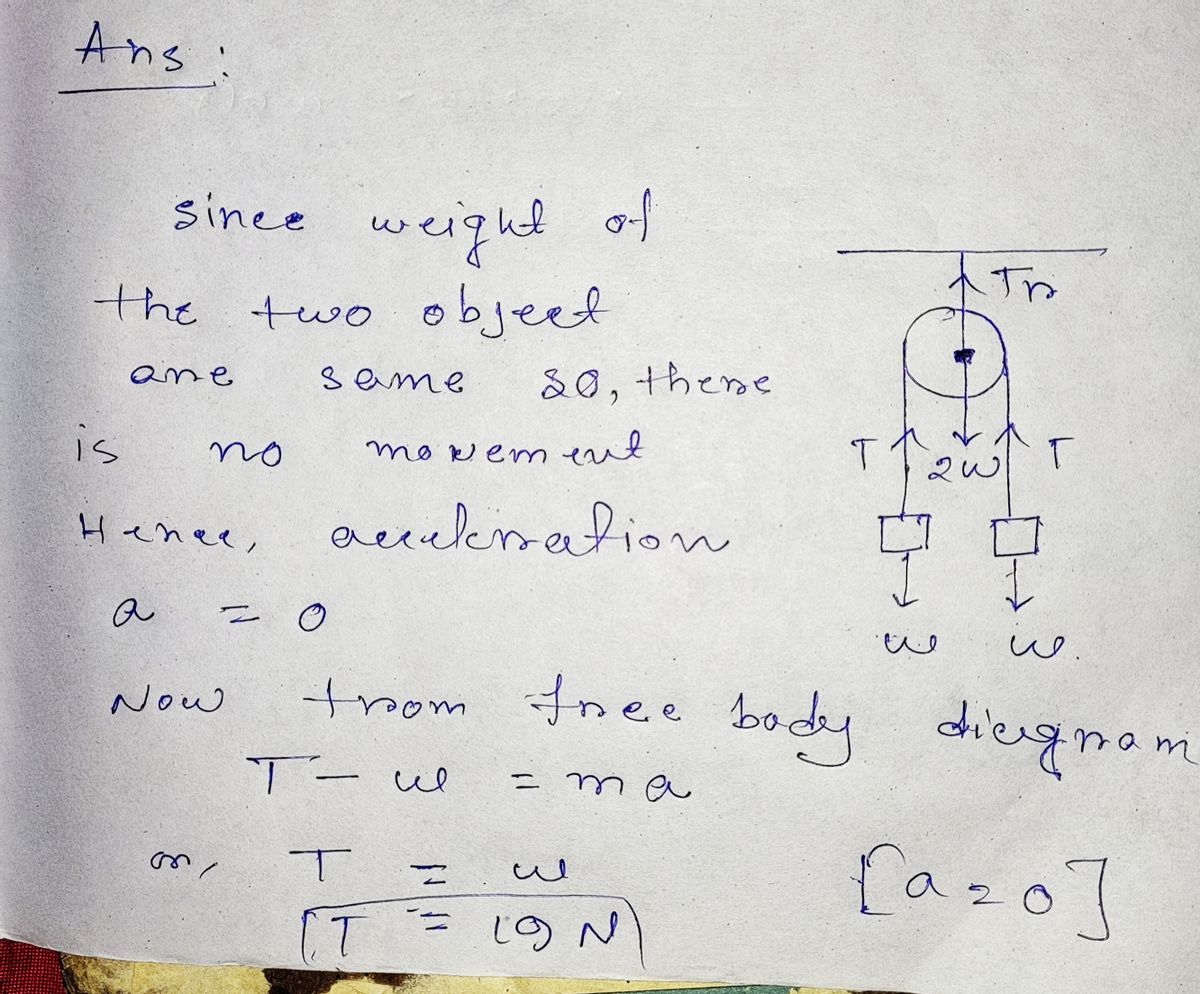 Ans :
since weight of
the two object
are same so, there
is no movement
Hence, acceleration
a = 0
Now from free body diagram
T - w = ma
or, T = w [a = 0]
T = 19 N
Tr
T 2w T
w w.